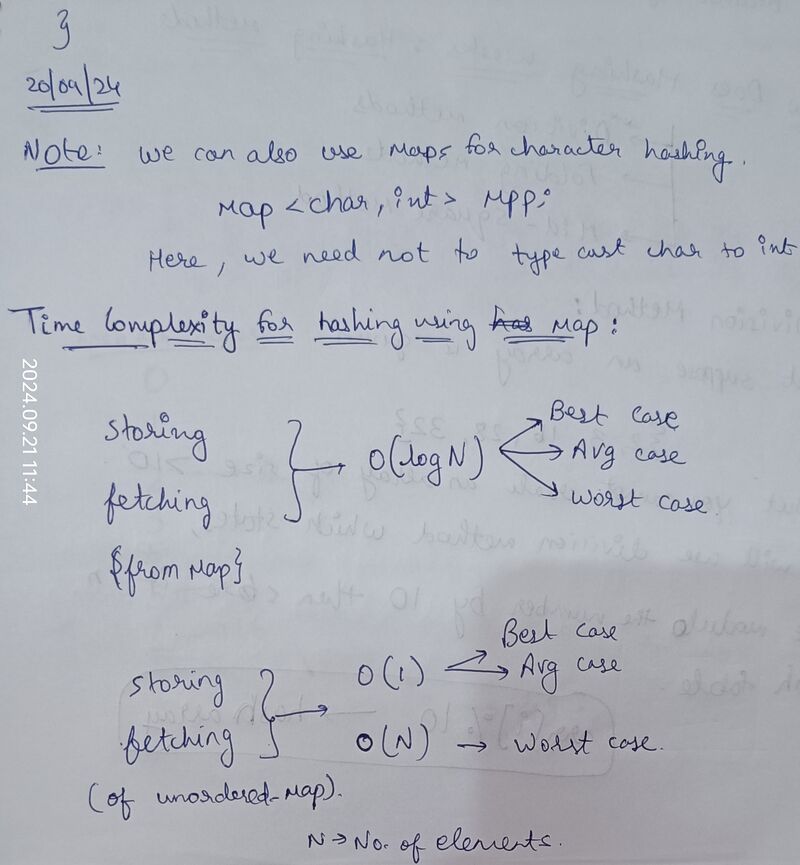 }
20/09/24
Note: we can also use Maps for character hashing.
Map <char, int> Mpp;
Here, we need not to type cast char to int
Time Complexity for hashing using has Map:
storing
fetching
{from Map}
O(logN)
Best case
Avg case
worst case.
storing
fetching
(of unordered-Map).
O(1)
Best case
Avg case
O(N) → worst case.
N → No. of elements.
2024.09.21 11:44